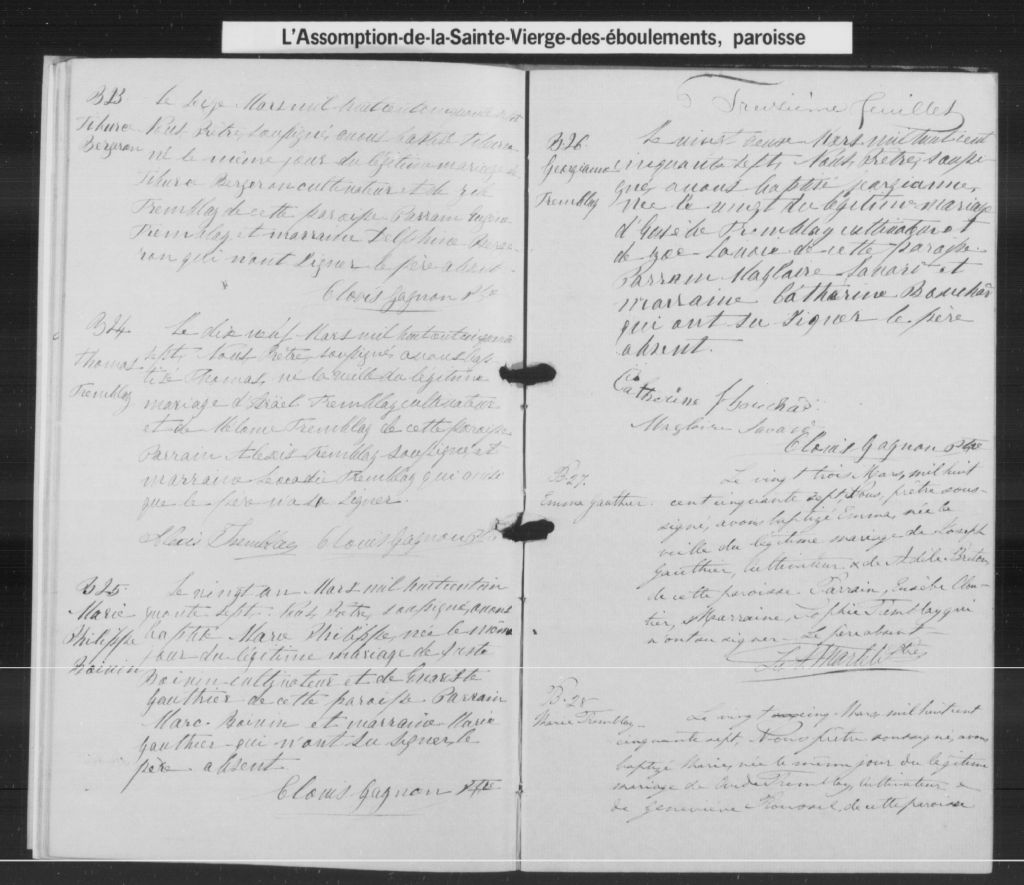 L'Assomption-de-la-Sainte-Vierge-des-éboulements, paroisse
B23
Tiburce
Bergeron
Le seize Mars mil huit cent cinquante sept
Nous Prêtre soussigné avons baptisé Tiburce
né le même jour du légitime mariage de
Tiburce Bergeron cultivateur et de Zoé
Tremblay de cette paroisse Parrain
Tremblay et marraine Delphine Berge
ron qui n'ont signer le père absent.
Clovis Gagnon Ptre
B24
Thomas
Tremblay
Le dix neuf Mars mil huit cent cinquante
sept, Nous Prêtre soussigné avons bap
tisé Thomas, né la veille du légitime
mariage d'Israël Tremblay cultivateur
et de Mélanie Tremblay de cette paroisse
Parrain Alexis Tremblay soussigné et
marraine Léocadie Tremblay qui ainsi
que le père n'a su signer.
Alexis Tremblay Clovis Gagnon Ptre
B25
Marie
Philippe
Boivin
Le vingt un Mars mil huit cent cin
quante sept Nous Prêtre soussigné avons
baptisé Marie Philippe, née le même
jour du légitime mariage de
Boivin cultivateur et de
Gauthier de cette paroisse Parrain
Marc Boivin et marraine Marie
Gauthier qui n'ont su signer, le
père absent
Clovis Gagnon Ptre
Troisième feuillet
B26
Georgianne
Tremblay
Le vingt deux Mars mil huit cent
cinquante sept, Nous Prêtre soussi
gné, avons baptisé Georgianne,
née le vingt du légitime mariage
d'Eusèbe Tremblay cultivateur et
de Zoé Savard de cette paroisse
Parrain Magloire Savard et
marraine Catharine Bouchard
qui ont su signer le père
absent.
Catherine Bouchard
Magloire Savard
Clovis Gagnon Ptre
B-27.
Emma Gauthier.
Le vingt trois Mars, mil huit
cent cinquante sept, Nous, prêtre sous-
signé, avons baptizé Emma, née la
veille du légitime mariage de Joseph
Gauthier, cultivateur & de Adèle
de cette paroisse Parrain, Eusèbe Clou-
tier, Marraine, Sophie Tremblay qui
n'ont su signer - Le père absent -
B-28
Marie Tremblay -
Le vingt cinq Mars, mil huit cent
cinquante sept, Nous prêtre soussigné, avons
baptizé Marie, née le même jour du légitime
mariage de Tremblay, cultivateur &
de Geneviève Roussel, de cette paroisse